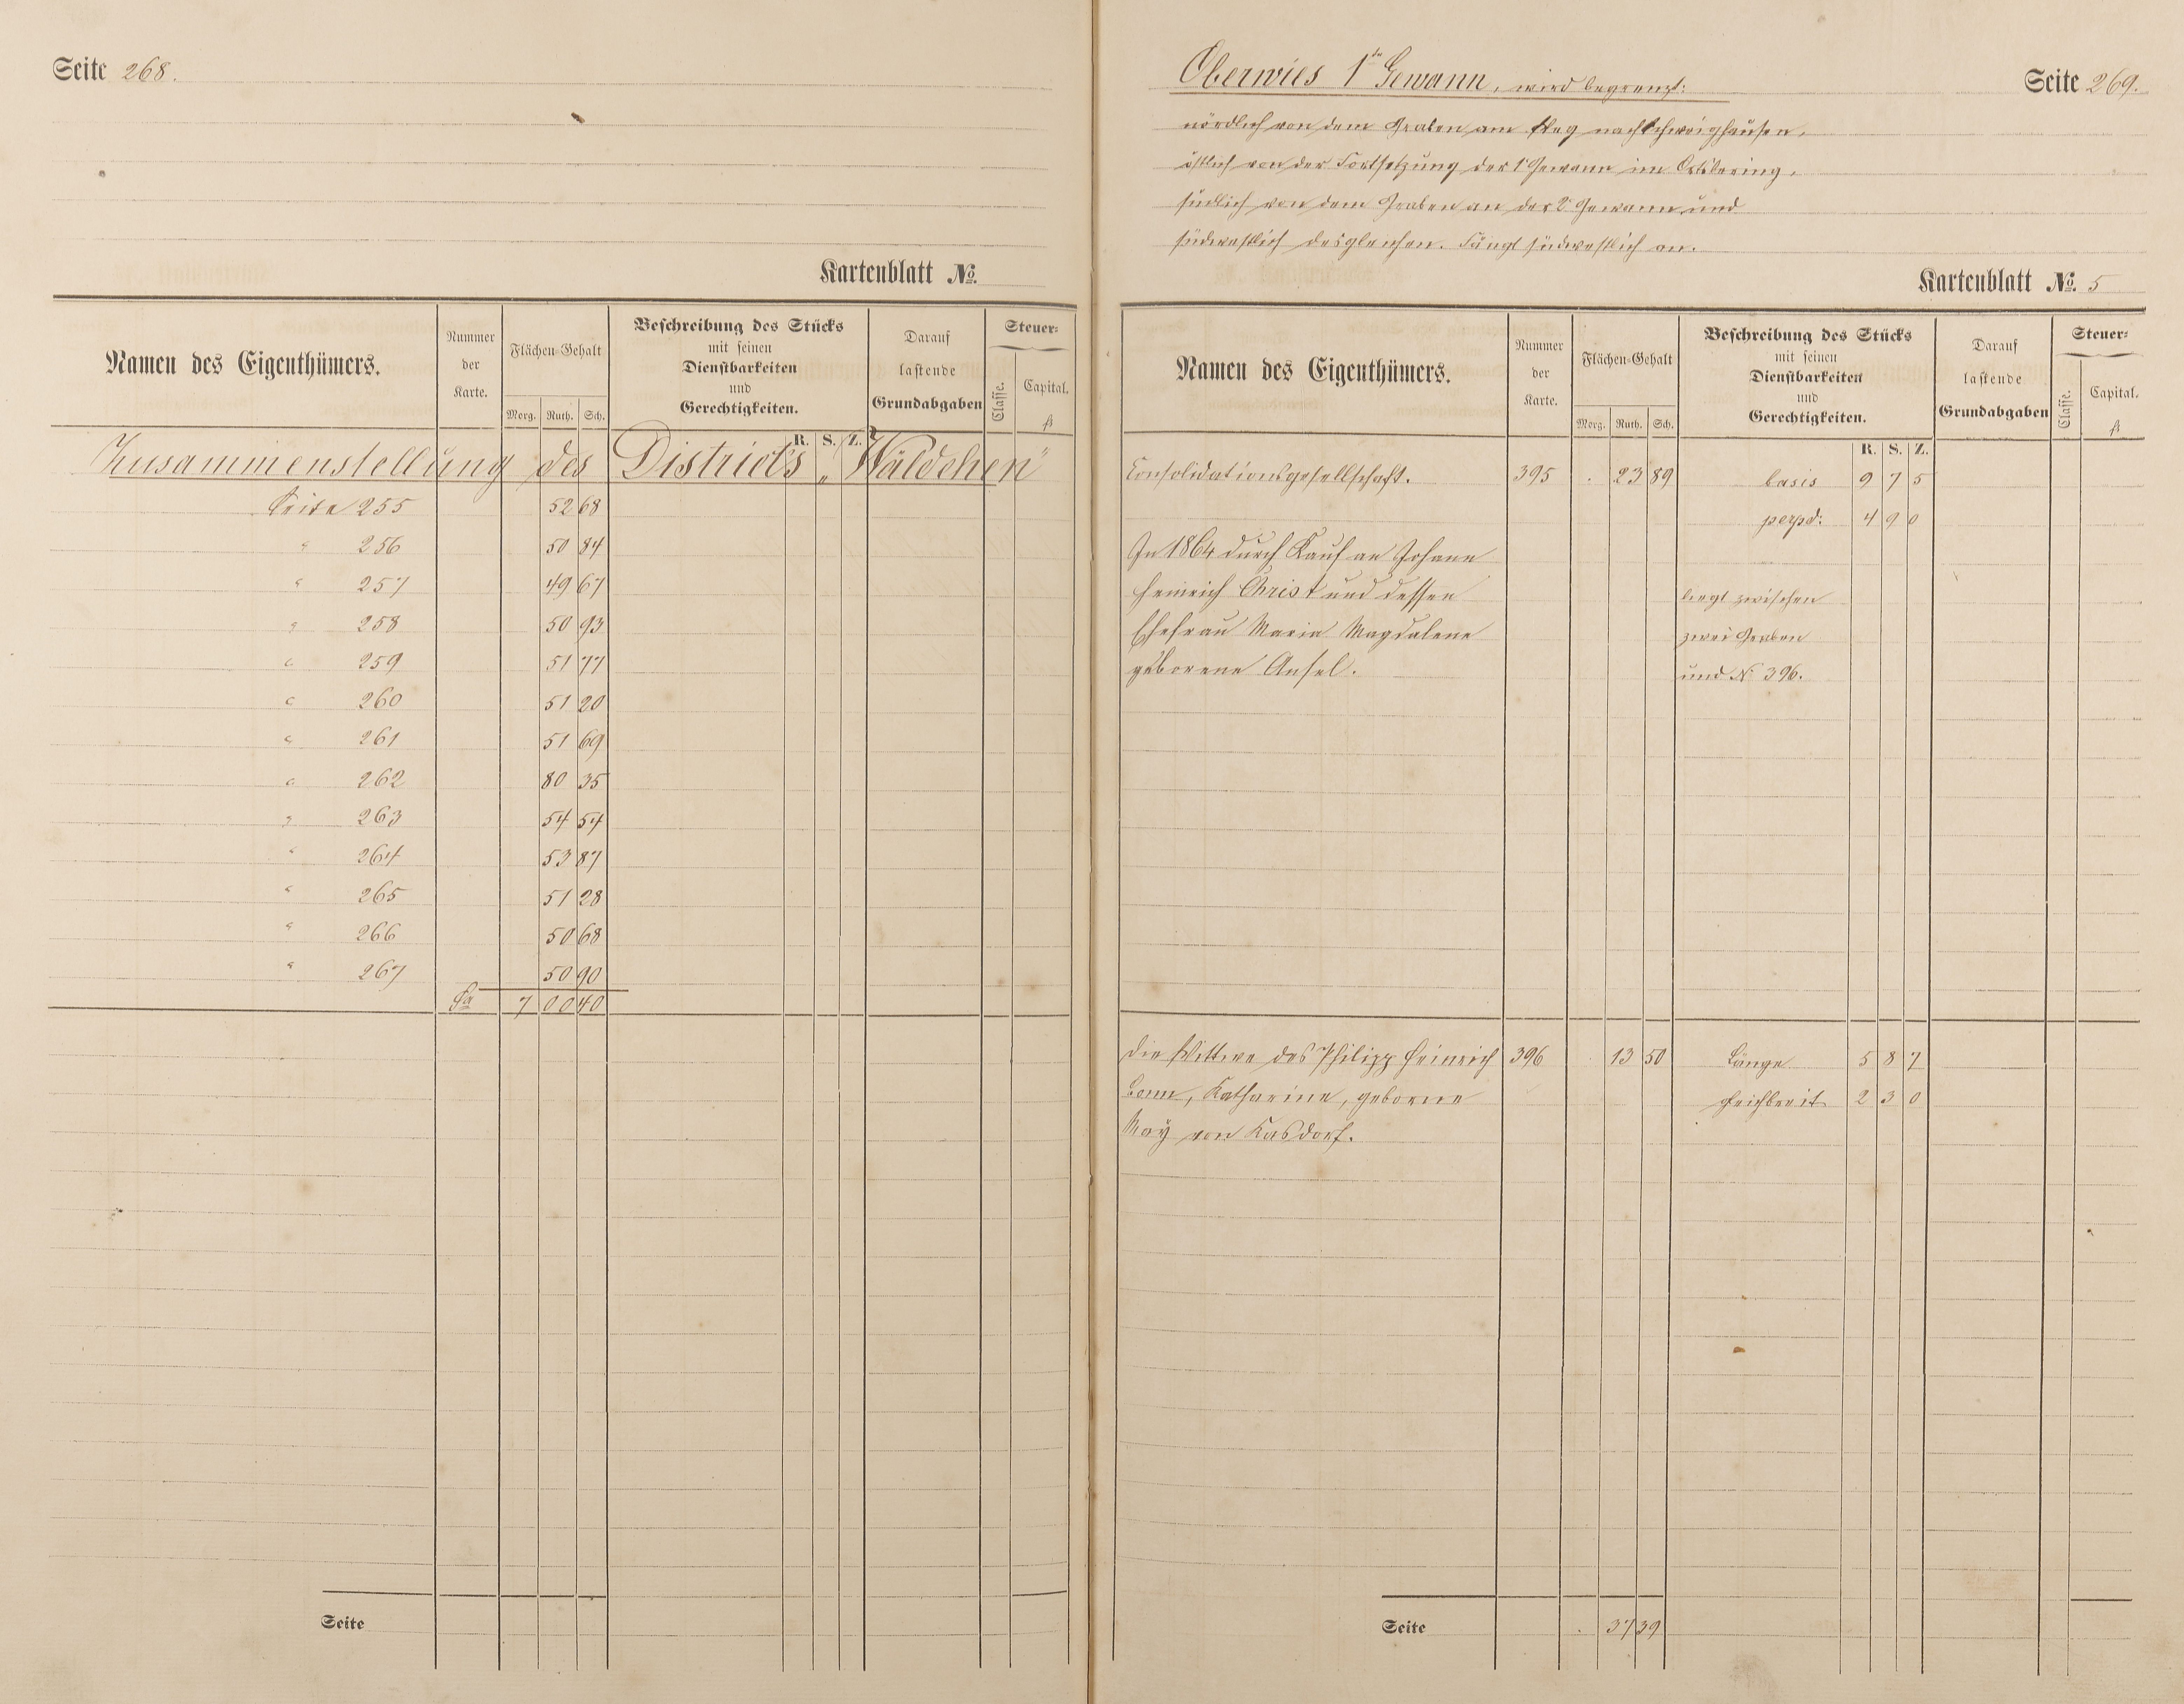 Seite 268.
Kartenblatt No.
Namen des Eigenthümers.
Nummer
der
Karte.
Flächen-Gehalt
Morg. Ruth. Sch.
Beschreibung des Stücks
mit seinen
Dienstbarkeiten
und
Gerechtigkeiten.
Darauf
lastende
Grundabgaben
Steuer-
Classe.
Capital.
fl.
R. S. Z.
Zusammenstellung des Districts „Wäldchen"
Seite 255 52 68
" 256 50 84
" 257 49 67
" 258 50 93
" 259 51 77
" 260 51 20
" 261 51 69
" 262 80 35
" 263 54 54
" 264 53 87
" 265 51 28
" 266 50 68
" 267 50 90
Sa 7 00 40
Seite
Oberwies 1te Gewann, wird begrenzt:
Seite 269.
nördlich von dem Graben am Weg nach Schweighausen,
östlich von der Fortsetzung der 1 Gewann im Ortsbering,
südlich von dem Graben an der 2 Gewann und
südwestlich desgleichen. Fängt südwestlich an.
Kartenblatt No. 5
Namen des Eigenthümers.
Nummer
der
Karte.
Flächen-Gehalt
Morg. Ruth. Sch.
Beschreibung des Stücks
mit seinen
Dienstbarkeiten
und
Gerechtigkeiten.
Darauf
lastende
Grundabgaben
Steuer-
Classe.
Capital.
fl.
R. S. Z.
Consolidationsgesellschaft. 395 . 23 89 basis 9 7 5
perpd: 4 9 0
In 1864 durch Kauf an Johann
Heinrich Christ und dessen liegt zwischen
Ehefrau Maria Magdalene zwei Graben
geborene Ansel. und No 396.
Die Wittwe des Philipp Heinrich 396 . 13 50 Länge 5 8 7
Bonn, Katharine, geborne gleichbreit 2 3 0
May von Kasdorf.
Seite . 37 39